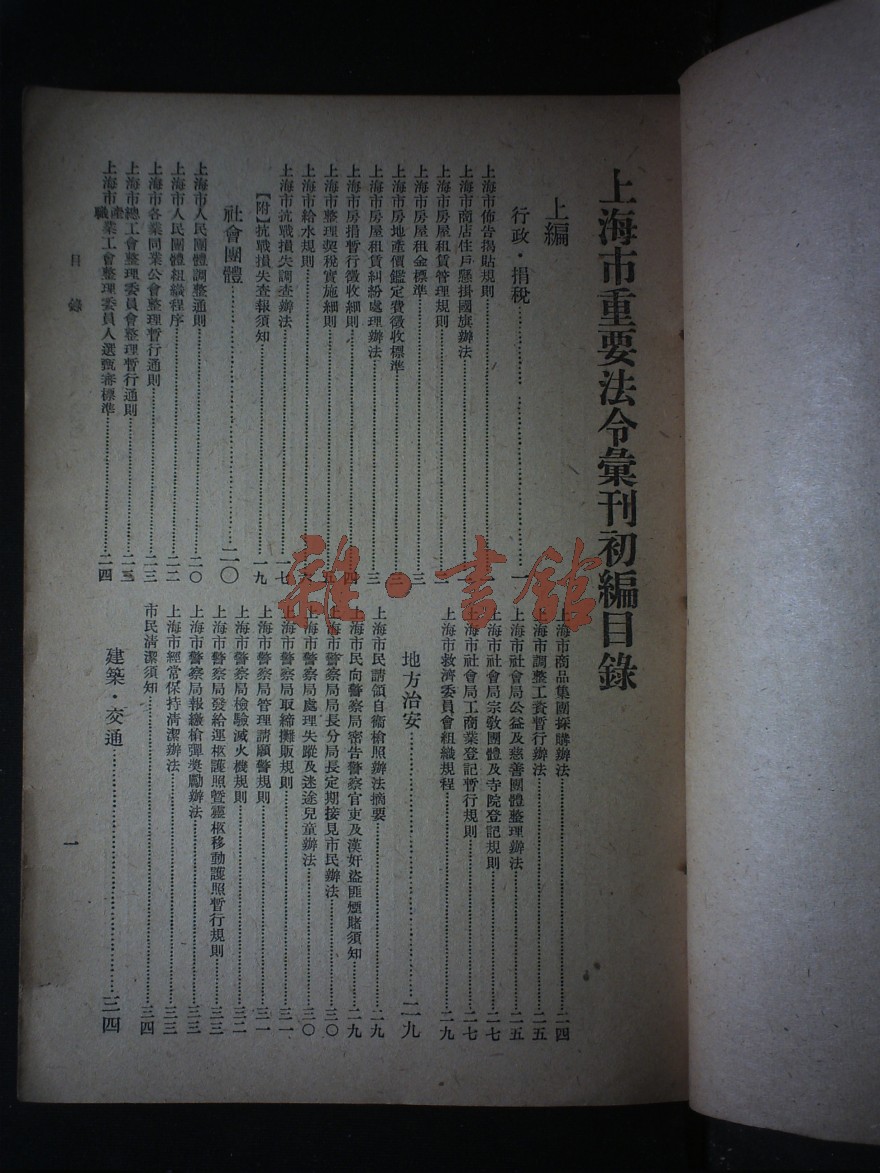 上海市重要法令彙刊初編目錄
上編
行政·捐稅……一
上海市佈告揭貼規則
上海市商店住戶懸掛國旗辦法
上海市房屋租賃管理規則
上海市房屋租金標準……三
上海市房地產價鑑定費徵收標準
上海市房屋租賃糾紛處理辦法……三
上海市房捐暫行徵收細則……四
上海市整理契稅實施細則……五
上海市給水規則
上海市抗戰損失調查辦法……一七
【附】抗戰損失查報須知……一九
社會團體……二〇
上海市人民團體調整通則……二〇
上海市人民團體組織程序……二二
上海市各業同業公會整理暫行通則……二三
上海市總工會整理委員會整理暫行通則……二三
上海市產職業工會整理委員人選甄審標準……二四
上海市商品集團採購辦法……二四
上海市調整工資暫行辦法……二五
上海市社會局公益及慈善團體整理辦法……二五
上海市社會局宗教團體及寺院登記規則……二七
上海市社會局工商業登記暫行規則……二七
上海市救濟委員會組織規程……二九
地方治安……二九
上海市民請領自衛槍照辦法摘要……二九
上海市民向警察局密告警察官吏及漢奸盜匪煙賭須知……二九
上海市警察局局長分局長定期接見市民辦法……三〇
上海市警察局處理失蹤及迷途兒童辦法……三〇
上海市警察局取締攤販規則……三一
上海市警察局管理請願警規則……三一
上海市警察局檢驗滅火機規則……三二
上海市警察局發給運柩護照暨靈柩移動護照暫行規則……三三
上海市警察局報繳槍彈獎勵辦法……三三
上海市經常保持清潔辦法……三三
市民清潔須知……三四
建築·交通……三四
目錄
一
雜·書館